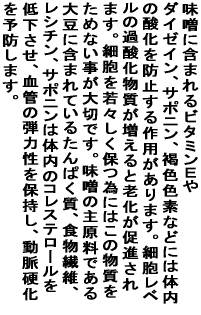 味噌に含まれるビタミンEや
ダイゼイン、サポニン、褐色色素などには体内
の酸化を防止する作用があります。細胞レベ
ルの過酸化物質が増えると老化が促進され
ます。細胞を若々しく保つ為にはこの物質を
ためない事が大切です。味噌の主原料である
大豆に含まれているたんぱく質、食物繊維、
レシチン、サポニンは体内のコレステロールを
低下させ、血管の弾力性を保持し、動脈硬化
を予防します。